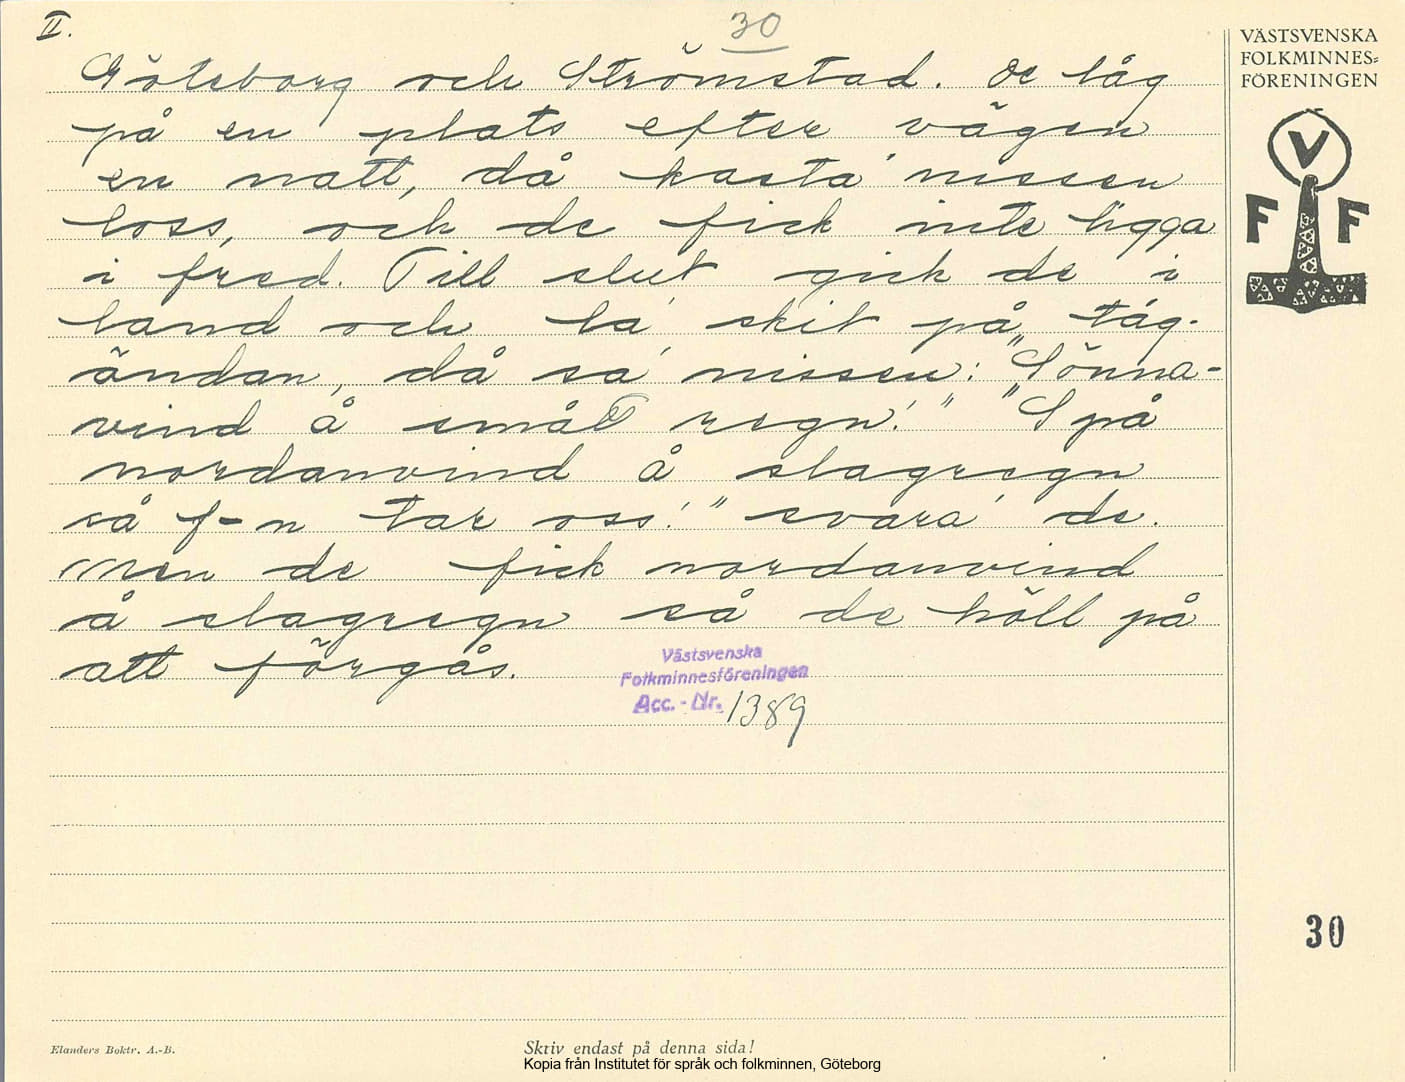 II.
30
VÄSTSVENSKA
FOLKMINNES=
FÖRENINGEN
V
F F
Göteborg och Strömstad. De låg
på en plats efter vägen
en natt, då kasta' nissen
loss, och de fick inte ligga
i fred. Till slut gick de i
land och la' skit på tåg-
ändan, då sa' nissen: "Sönna-
vind å småt regn!" "Spå
nordanvind å slagregn
så f-n tar oss!" svara' de.
Men de fick nordanvind
å slagregn så de höll på
att förgås.
Västsvenska
Folkminnesföreningen
Acc. - Nr. 1389
30
Elanders Boktr. A.-B.
Skriv endast på denna sida!
Kopia från Institutet för språk och folkminnen, Göteborg